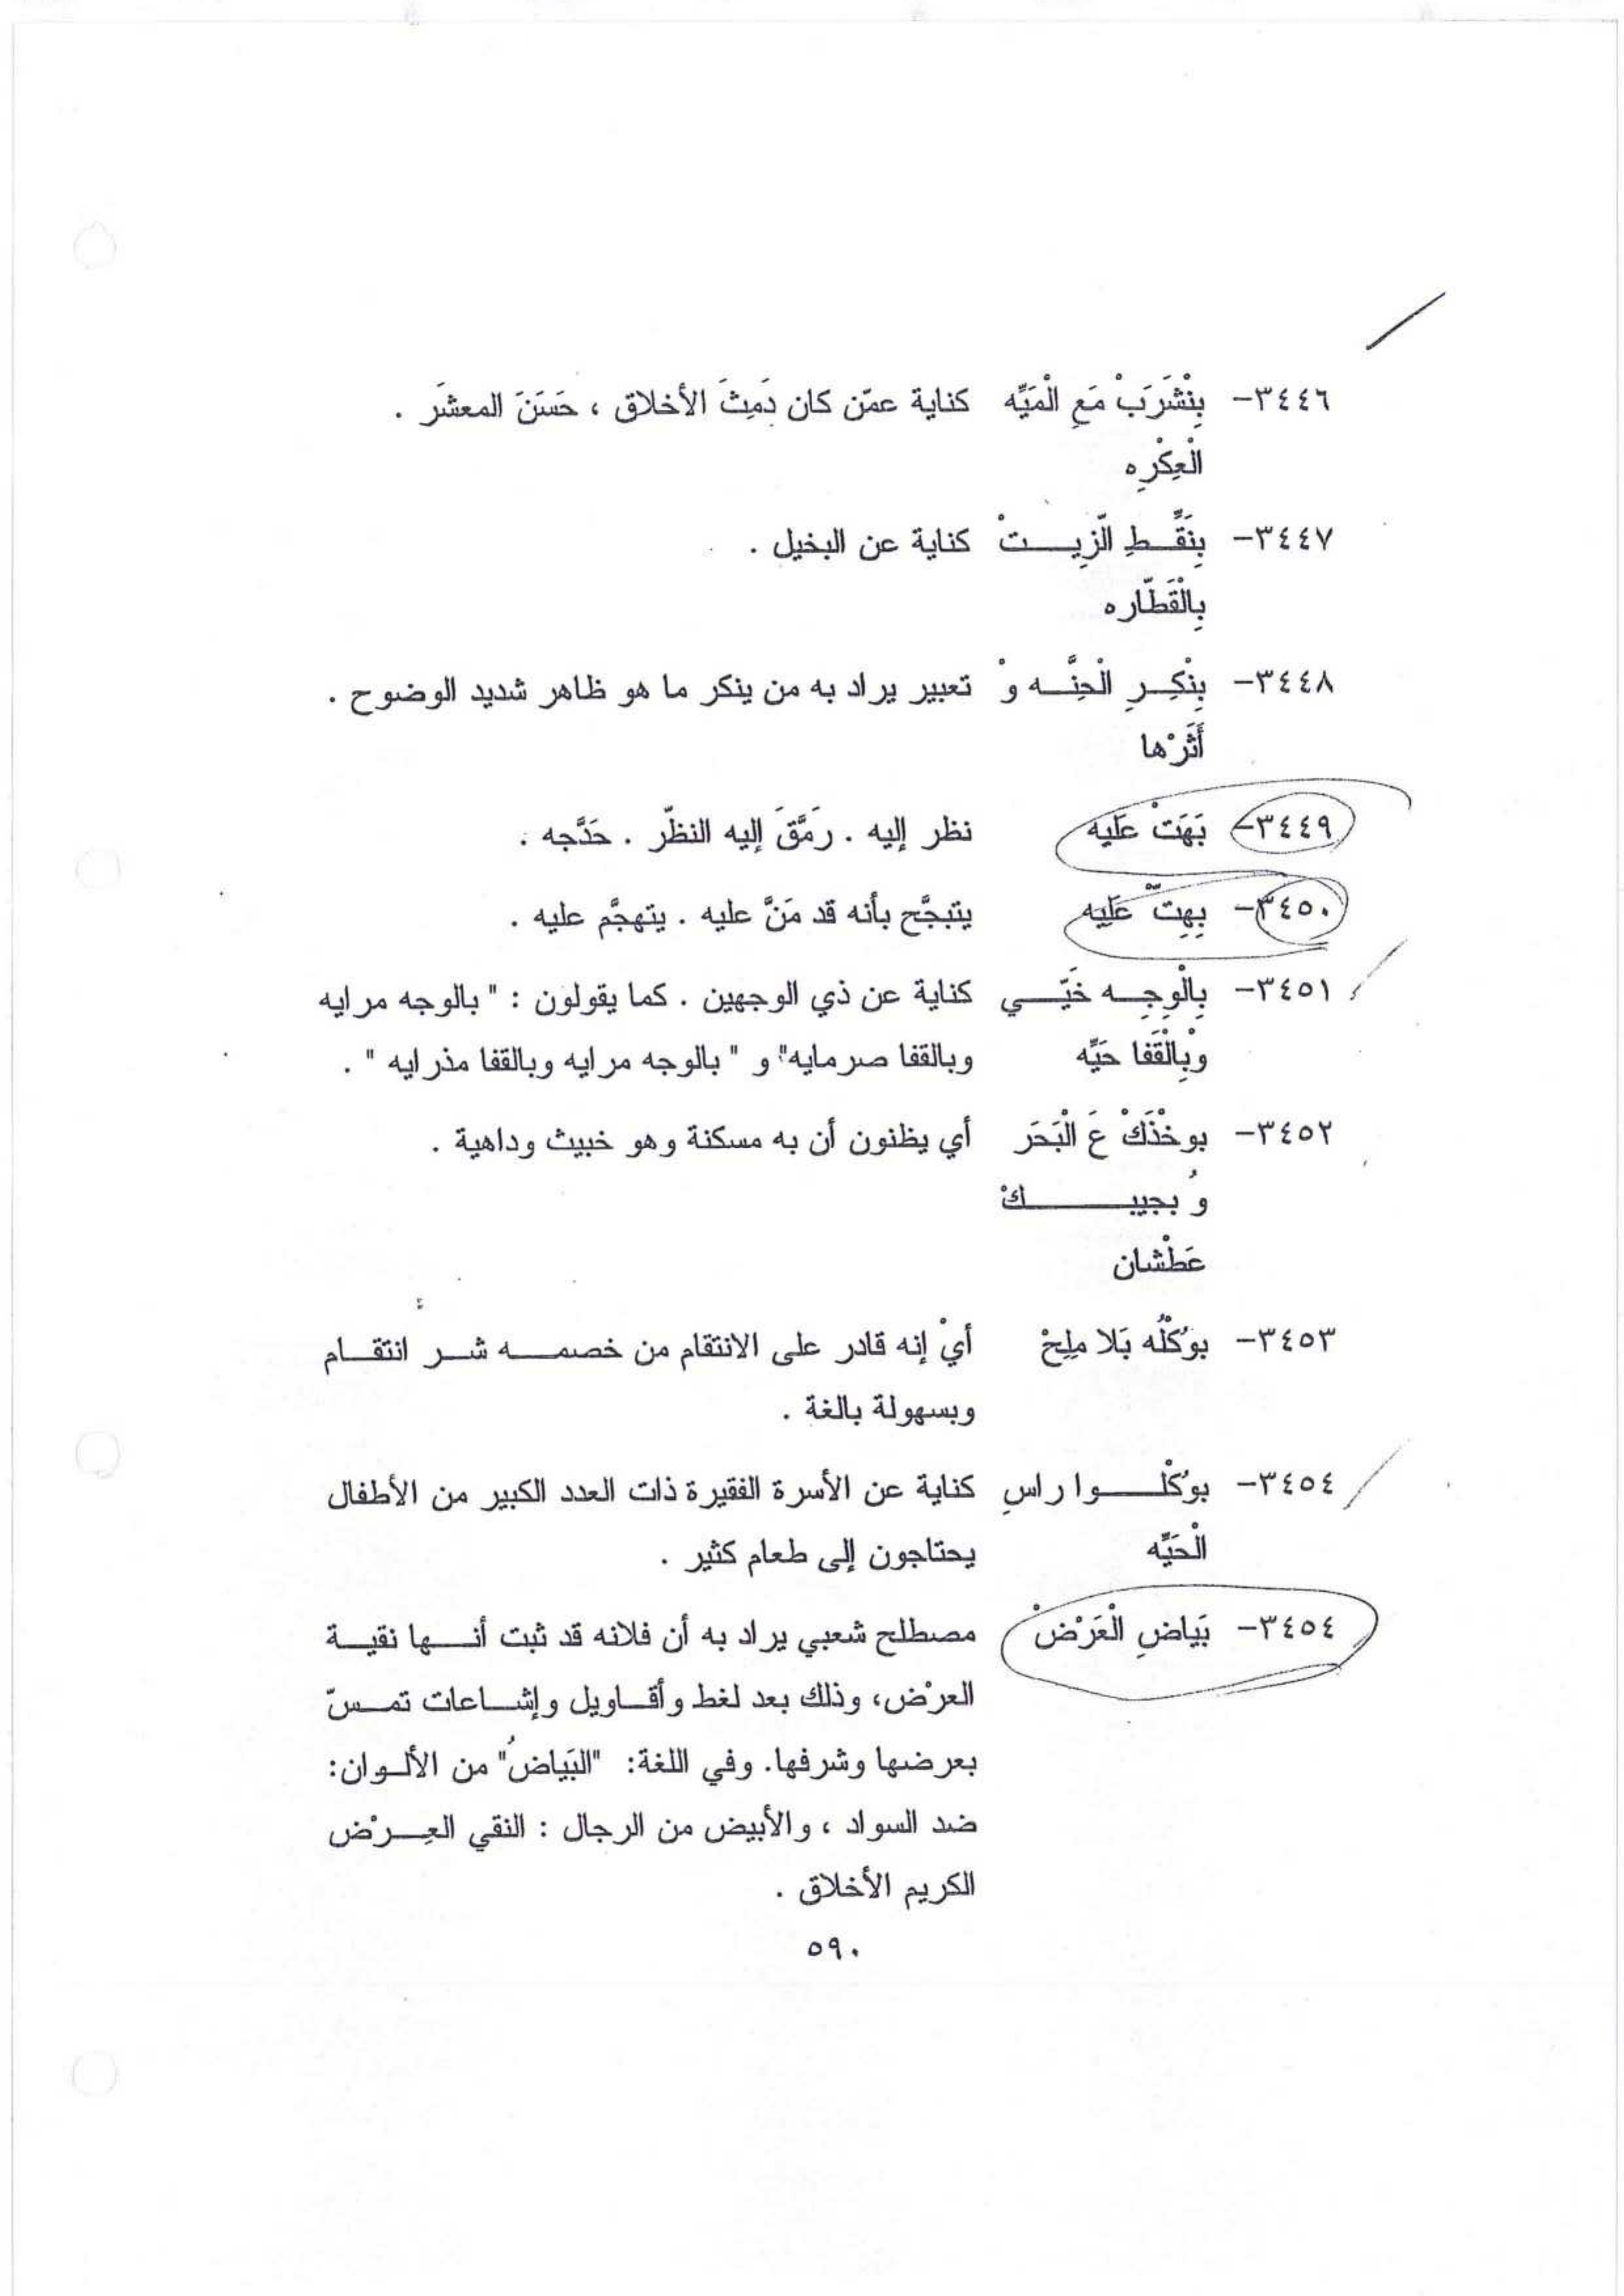 ٣٤٤٦- بِنْشَرَبْ مَعِ الْمَيِّه كناية عمّن كان دَمِثَ الأخلاق ، حَسَنَ المعشَر .
الْعِكْرِه
٣٤٤٧- بِنَقِّـطِ الّزِيـــتْ كناية عن البخيل .
بِالْقَطّاره
٣٤٤٨- بِنْكِـرِ الْحِنَّـه وْ تعبير يراد به من ينكر ما هو ظاهر شديد الوضوح .
أَثَرْها
٣٤٤٩- بَهَتْ عَليه نظر إليه . رَمَّقَ إليه النظّر . حَدَّجه .
٣٤٥٠- بِهِتّْ عَلَيه يتبجَّح بأنه قد مَنَّ عليه . يتهجَّم عليه .
٣٤٥١- بِالْوِجِـه خَيّـــي كناية عن ذي الوجهين . كما يقولون : " بالوجه مرايه
وْبِالْقَفا حَيِّه وبالقفا صرمايه" و " بالوجه مرايه وبالقفا مذرايه " .
٣٤٥٢- بوخْذَكْ عَ الْبَحَر أي يظنون أن به مسكنة وهو خبيث وداهية .
وُ بجيبـــــــكْ
عَطْشان
٣٤٥٣- بوُكْلُه بَلا مِلِحْ أيْ إنه قادر على الانتقام من خصمـــه شـــر انتقـــام
وبسهولة بالغة .
٣٤٥٤- بوُكْلـــــوا راسِ كناية عن الأسرة الفقيرة ذات العدد الكبير من الأطفال
الْحَيِّه يحتاجون إلى طعام كثير .
٣٤٥٤- بَياضِ الْعَرْضْ مصطلح شعبي يراد به أن فلانه قد ثبت أنــها نقيـــة
العرْض، وذلك بعد لغط وأقــاويل وإشــاعات تمــسّ
بعرضها وشرفها. وفي اللغة: "البَياضُ" من الألــوان:
ضد السواد ، والأبيض من الرجال : النقي العِــرْض
الكريم الأخلاق .
٥٩٠